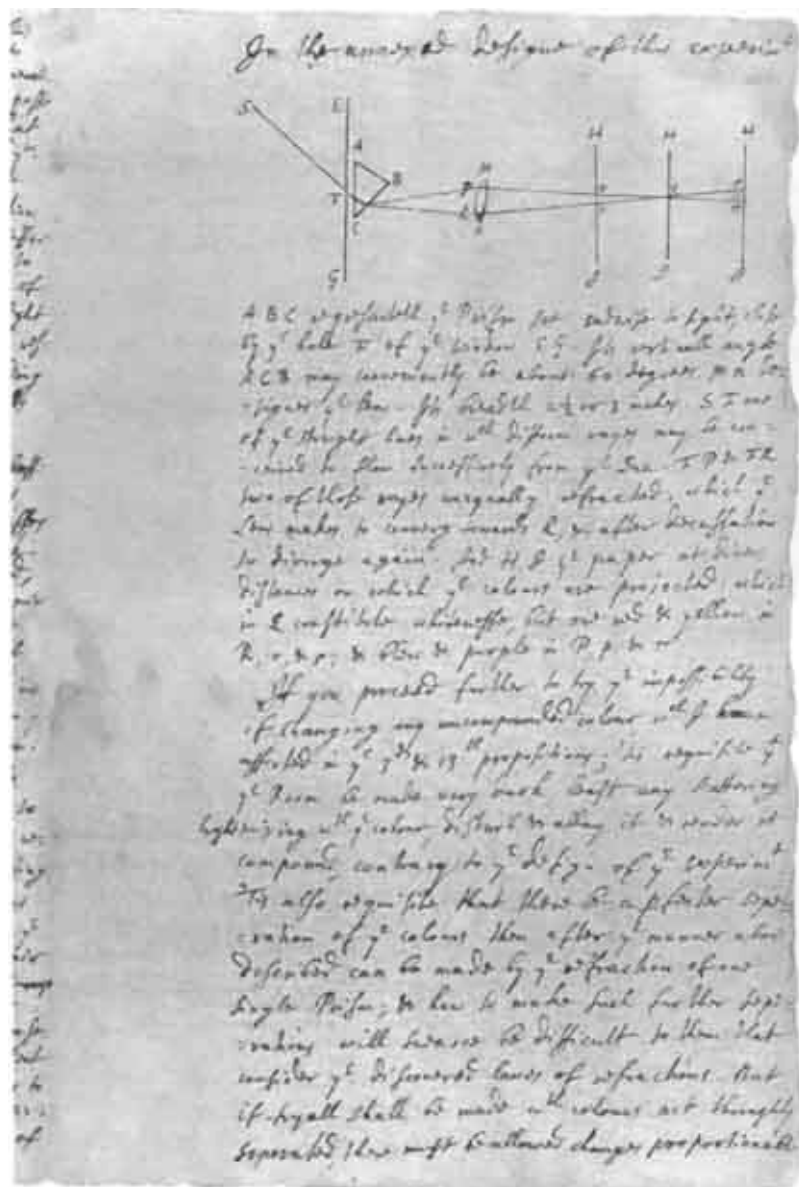 In the annexed designe of this experimt
S E A B F C G M P R N H H H Q I I I
A B C representeth ye Prism set endwise to sight, close
by ye hole F of ye window E G. Its verticall angle
A C B may conveniently be about 60 degrees. M N de-
-signes ye Lens. Its breadth 2½ or 3 inches. S F one
of ye streight lines in wch difform rayes may be con-
-ceived to flow successively from ye Sun. F P & F R
two of those rayes unequally refracted, which ye
Lens makes to converg towards Q, & after decussation
to diverge again. And H I ye paper at divers
distances on which ye colours are projected: which
in Q constitute whitenesse, but are red & yellow in
R, r, & ρ; & blew & purple in P, p, & π
If you proceed further to try ye impossibility
of changing any uncompounded colour wch I have
asserted in ye 3d & 13th propositions; 'tis requisite yt
ye Room be made very dark least any scattering
light mixing wth ye colour, disturb & allay it & render it
compound, contrary to ye designe of ye experimt
'Tis also requisite that there be a perfecter sepa-
-ration of ye colours then after ye manner above
described can be made by ye refraction of one
single Prism; & how to make such further sepa-
-rations will scarce be difficult to them that
consider ye discovered laws of refractions. But
if tryall shall be made wth colours not throughly
separated, there must be allowed changes proportionable